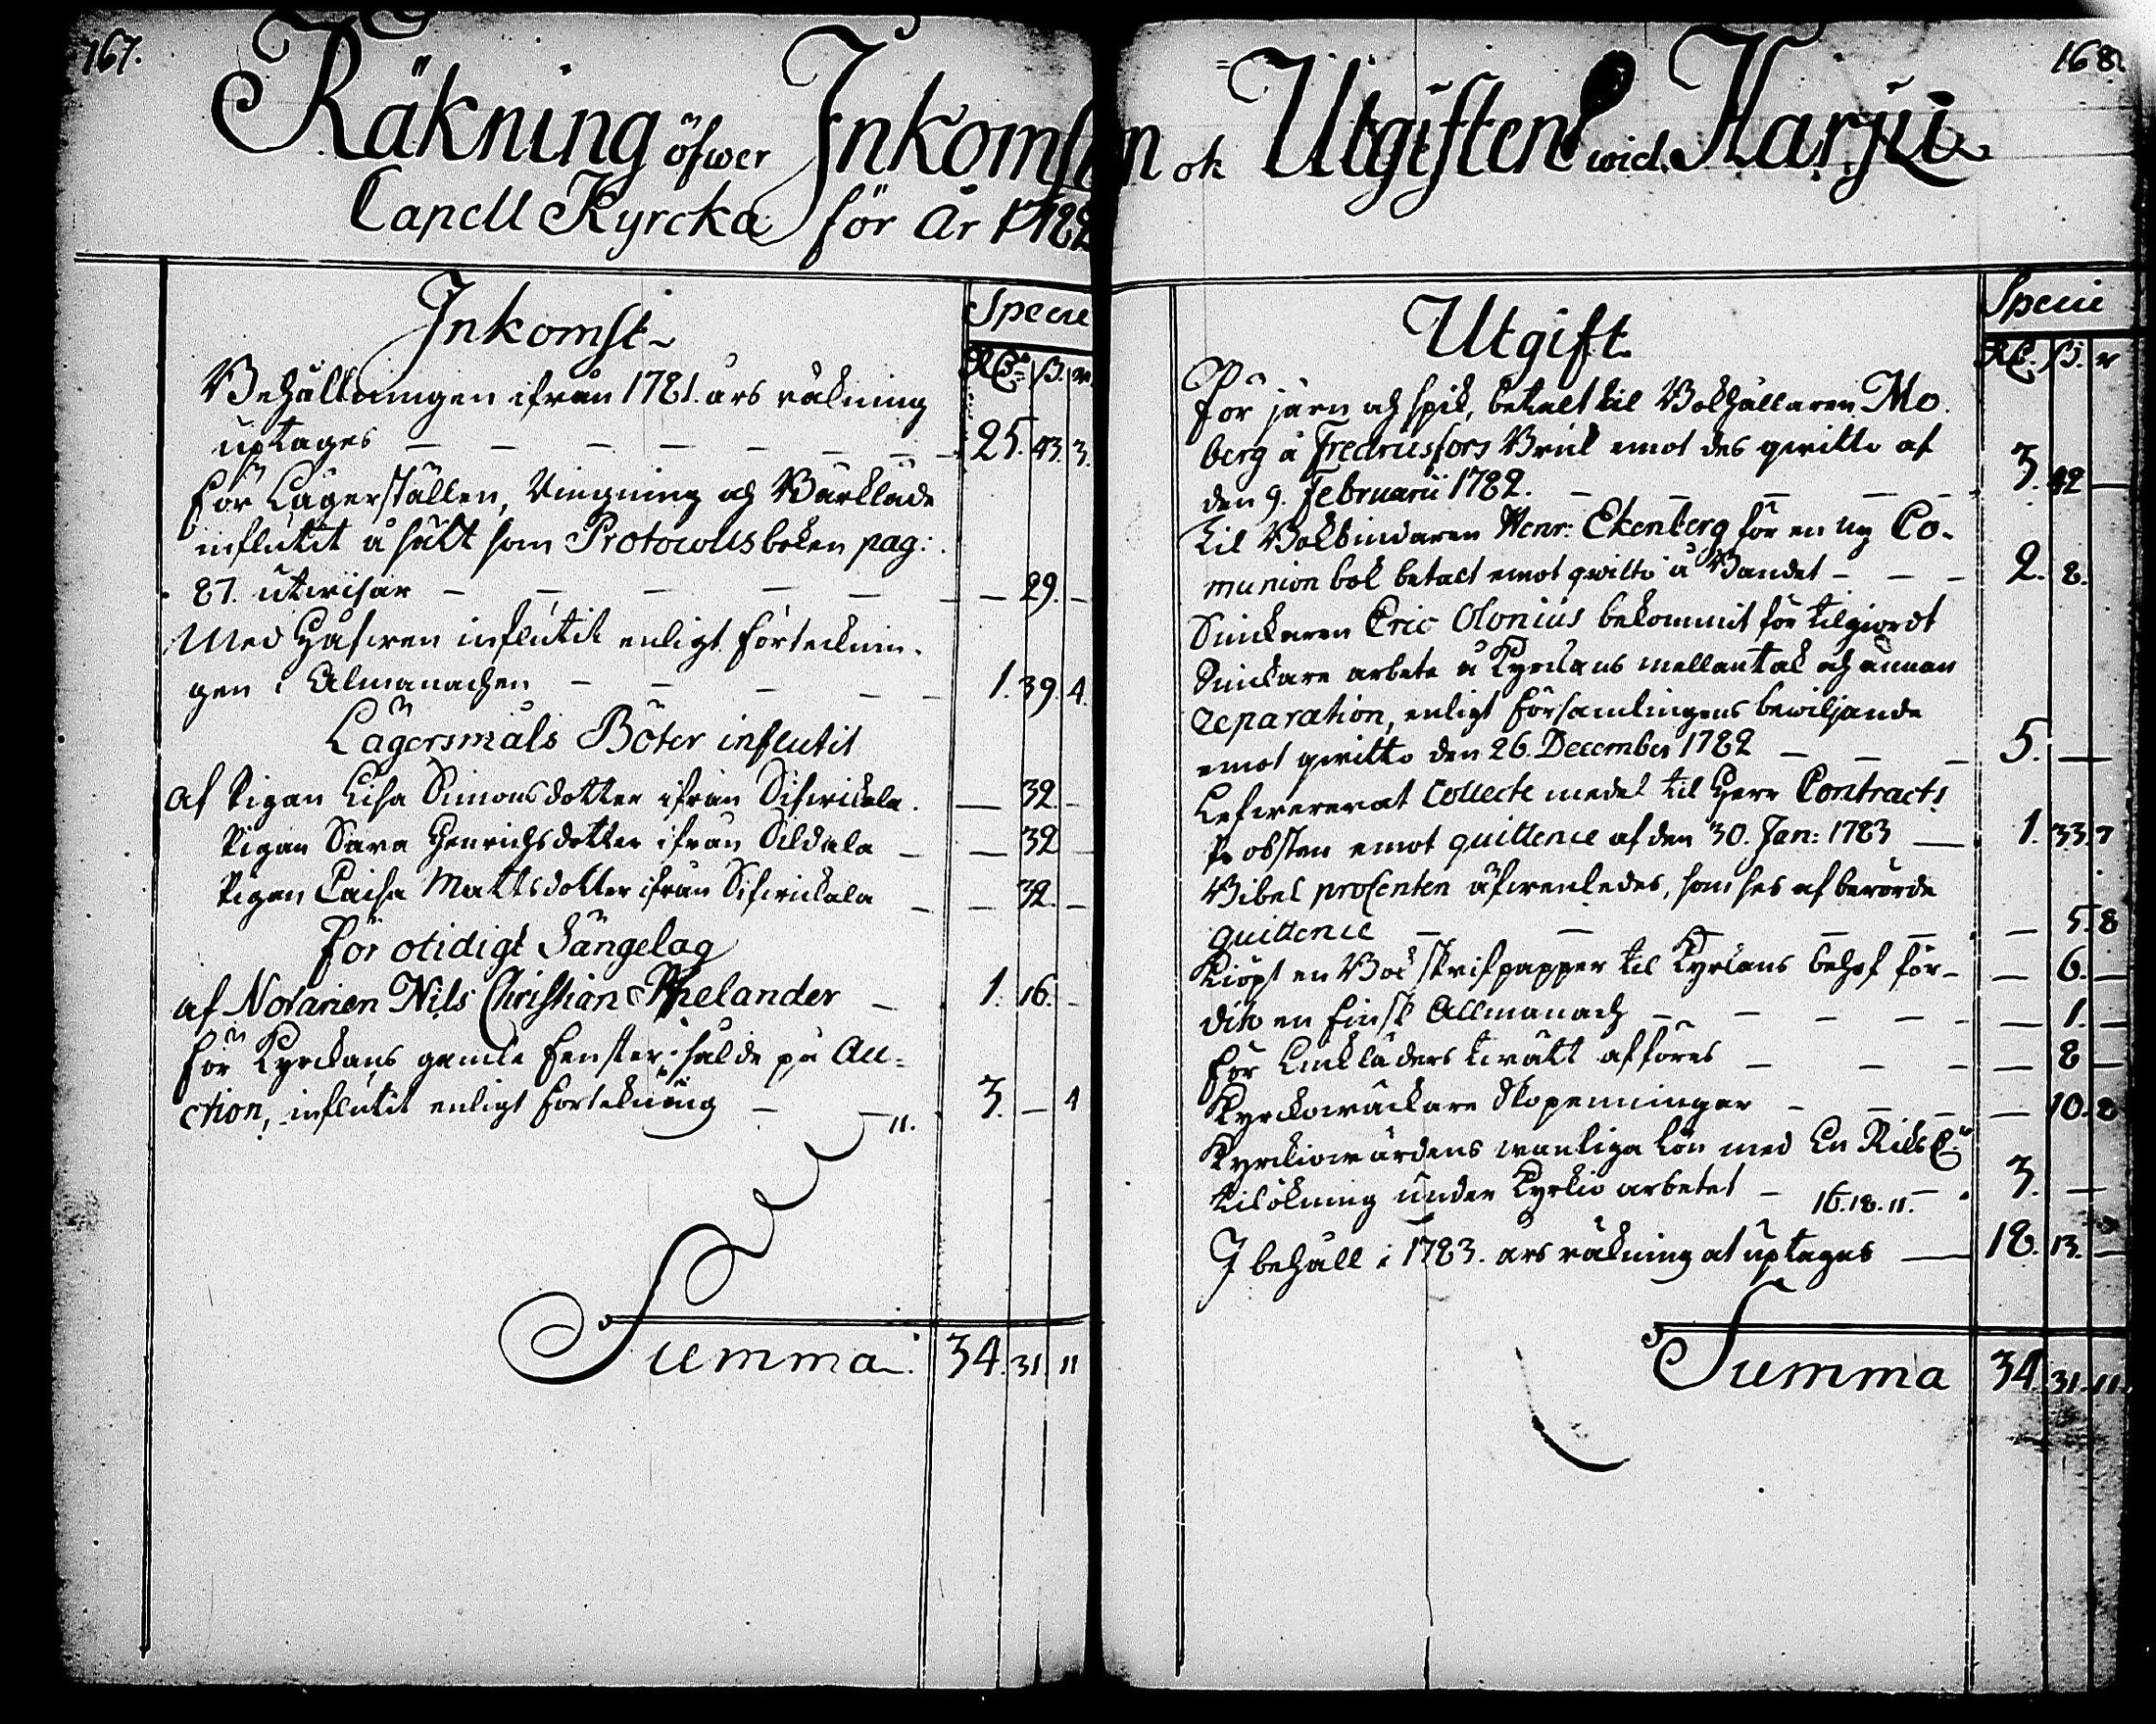 167.
168.
Räkning öfwer Inkomsten ok Utgiften wid Karju
Capell Kyrcka för År 1782
Inkomst
Specie
Behållningen ifrån 1781. års räkning
uptages — — — — — — 25. 43. 3.
För Lägerställen, Ringning och Bårkläde
influtit å sätt som Protocollsboken pag:
87. utwisar — — — — — — 29. —
Med Håfwen influtit enligt förtecknin-
gen i Almanachen — — — — — 1. 39. 4.
Lägersmåls Böter influtit
af Pigan Lisa Simonsdotter ifrån — 32. —
Pigan Sara Henrichsdotter ifrån — — 32 —
Pigan Caisa Mattsdotter ifrån — — 32. —
För otidigt Sängelag
af Notarien Nils Christian — 1. 16. —
För Kyrckans gamla fenster, sålde på Au=
ction, influtit enligt förtekning — — 11. 3. — 4
Summa. 34. 31. 11
Utgift
Specie
För järn och spik, betalt til Bokhållaren Mo
berg å Fredricsfors Bruk emot des qwitto af
den 9. Februarii 1782. — — — — 3. 42 —
Til Bokbindaren Henr: Ekenberg för en ny Co-
munion bok betalt emot qwitto å Bandet — — — 2. 8.
Snickaren Eric Olonius bekommit för tilgiordt
Snickare arbete å Kyrckans mellantak och annan
reparation, enligt Församlingens bewiljande
emot qwitto den 26. December 1782 — — — 5. — —
Lefwererat Collecte medel til Herr Contracts
Probsten emot quittence af den 30. Jan: 1783 — 1. 33. 7
Bibel procenten äfwenledes, som ses af berörde
quittence — — — — — 5. 8
Kiöpt en Bok skrifpapper til Kyrckans behof för — — 6. —
dito en finsk Allmanach — — — — — 1. —
För Linkläders twätt afföres — — — — 8 —
Kyrckowäckare Skopenningar — — — — 10. 8
Kyrckiowärdens wanliga lön med En Riksd:
tilökning under Kyrkio arbetet — 16. 18. 11. — 3. —
I behåll i 1783. års räkning at uptagas — 18. 13. —
Summa 34. 31. 11.